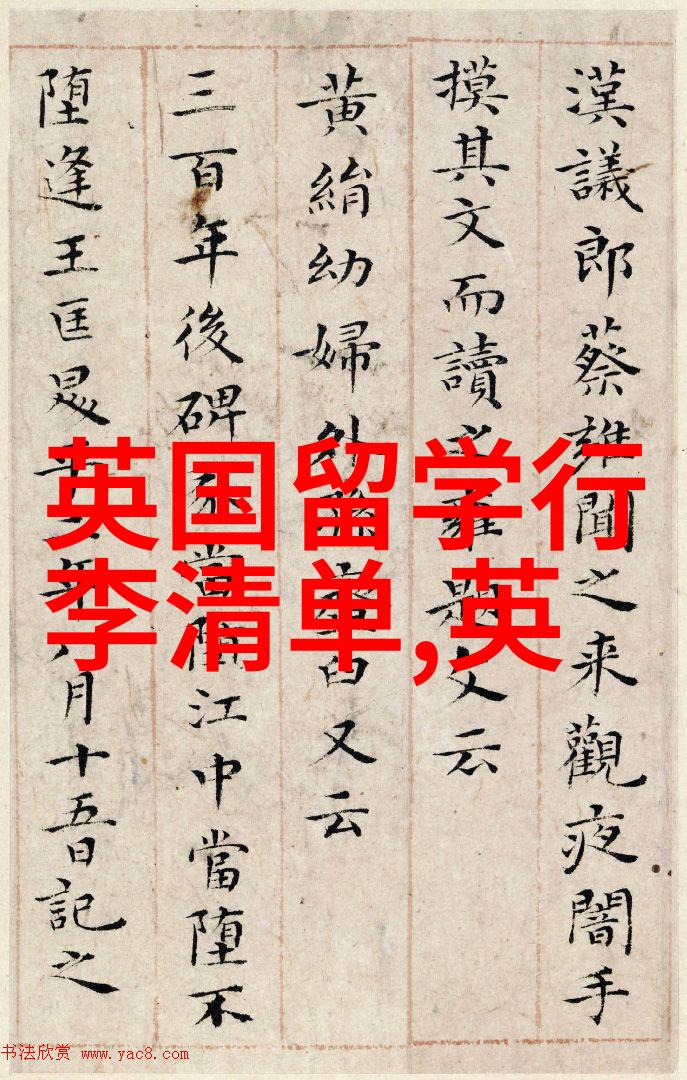 漢議郎蔡雍聞之来觀夜闇手
摸其文而讀之雍題文云
黄絹幼婦外孫臼又云
三百年後碑冢當江中當墮不
堕逢王匡平二年八月十五日記之
英国留学行
李清单,英
书法欣赏 www.yac8.com